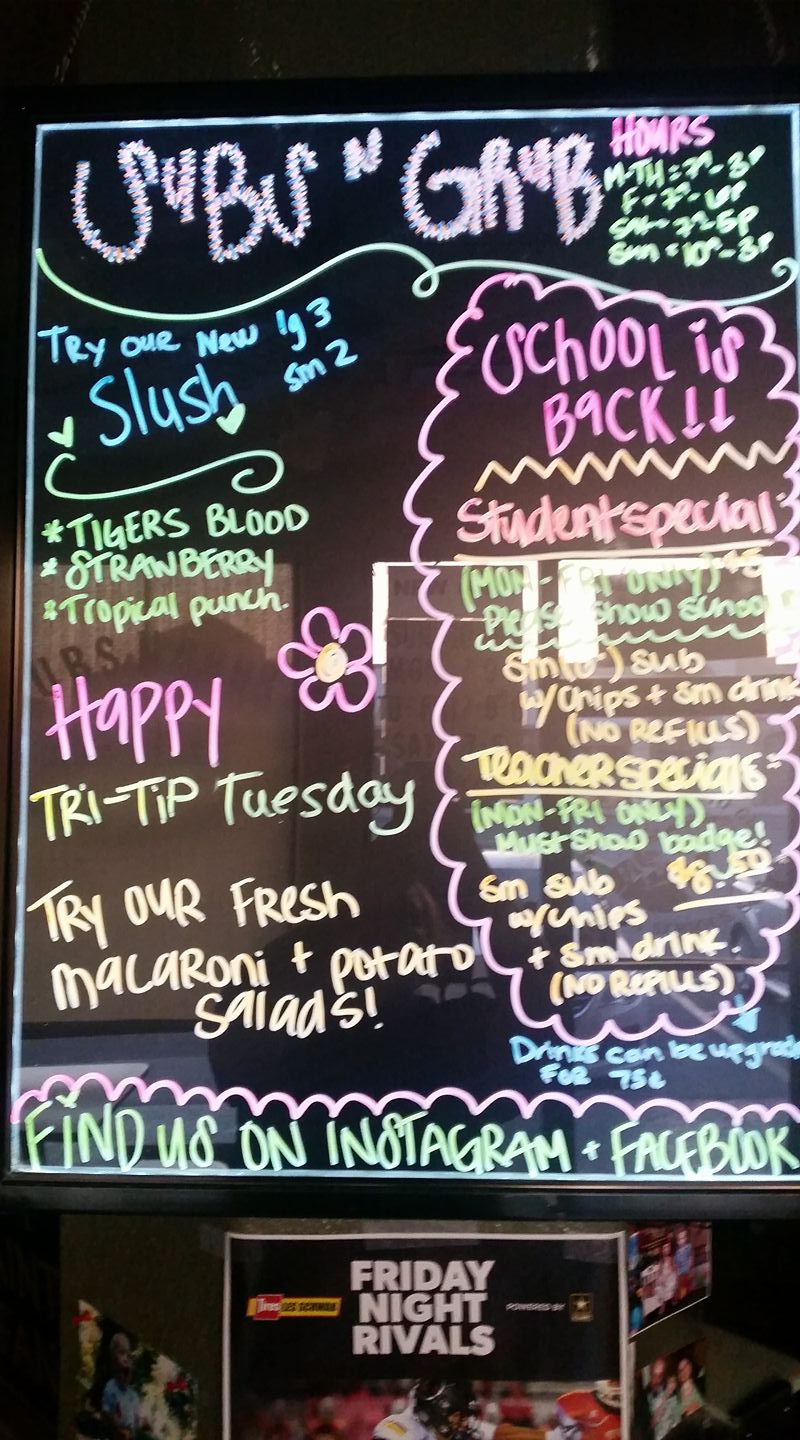 SUBS 'N' GRUB
HOURS
M-TH = 7ᴬ-3ᴾ
SAT- 7ᴬ-5P
Sun = 10ᴬ-3P
Try our New lg 3
Slush sm 2
*TIGERS BLOOD
*STRAWBERRY
*Tropical punch.
Happy
TRI-TiP Tuesday
TRY OUR FRESH
macaroni + potato
salads!
SCHOOL is
BACK!!
Student special
(MON-FRI ONLY) $5
Please show school
Sm (6") sub
w/chips + sm drink
(NO REFILLS)
Teacher special
(MON-FRI ONLY)
Must show badge!
Sm sub $8.50
w/chips
+ sm drink.
(NO REFILLS)
Drinks can be upgrade
FOR 75¢
FIND US ON INSTAGRAM + FACEBOOK
FRIDAY
NIGHT
RIVALS
Tires LES SCHWAB
POWERED BY